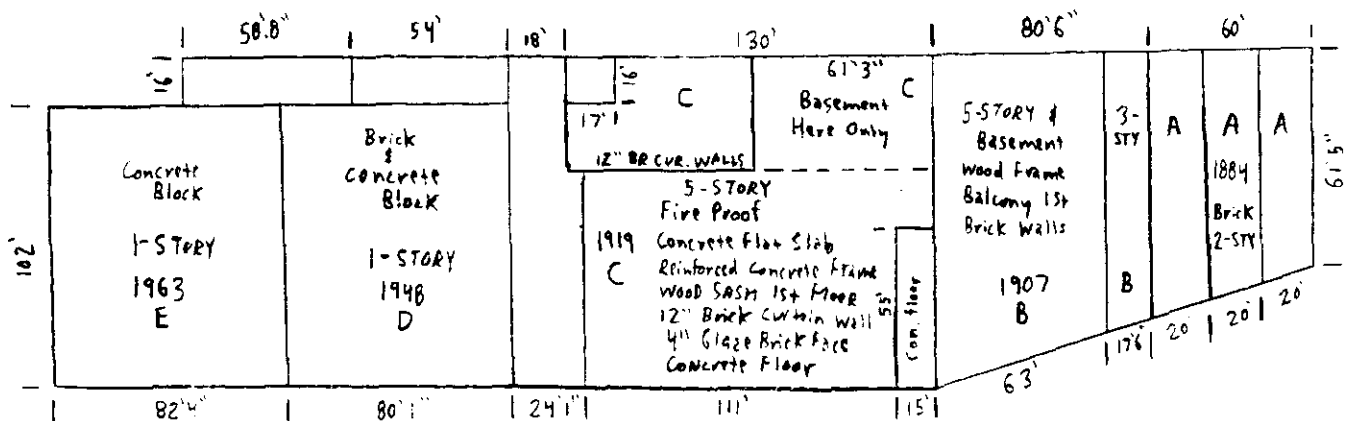 58'.8"
54'
18'
130'
80'6"
60'
16'
16'
17'
C
61'3"
C
Basement
Here Only
12" BR CUR. WALLS
Concrete
Block
1-STORY
1963
E
Brick
&
Concrete
Block
1-STORY
1948
D
5-STORY
Fire Proof
1919
Concrete Flat Slab
C
Reinforced Concrete Frame
WOOD SASH 1st Floor
12" Brick Curtain Wall
4" Glaze Brick Face
Concrete Floor
55'
Con. floor
5-STORY &
Basement
Wood Frame
Balcony 1st
Brick Walls
1907
B
3-
STY
B
A
A
A
1884
Brick
2-STY
102'
82'4"
80'1"
24'1"
111'
15'
63'
17'6
20'
20'
20'